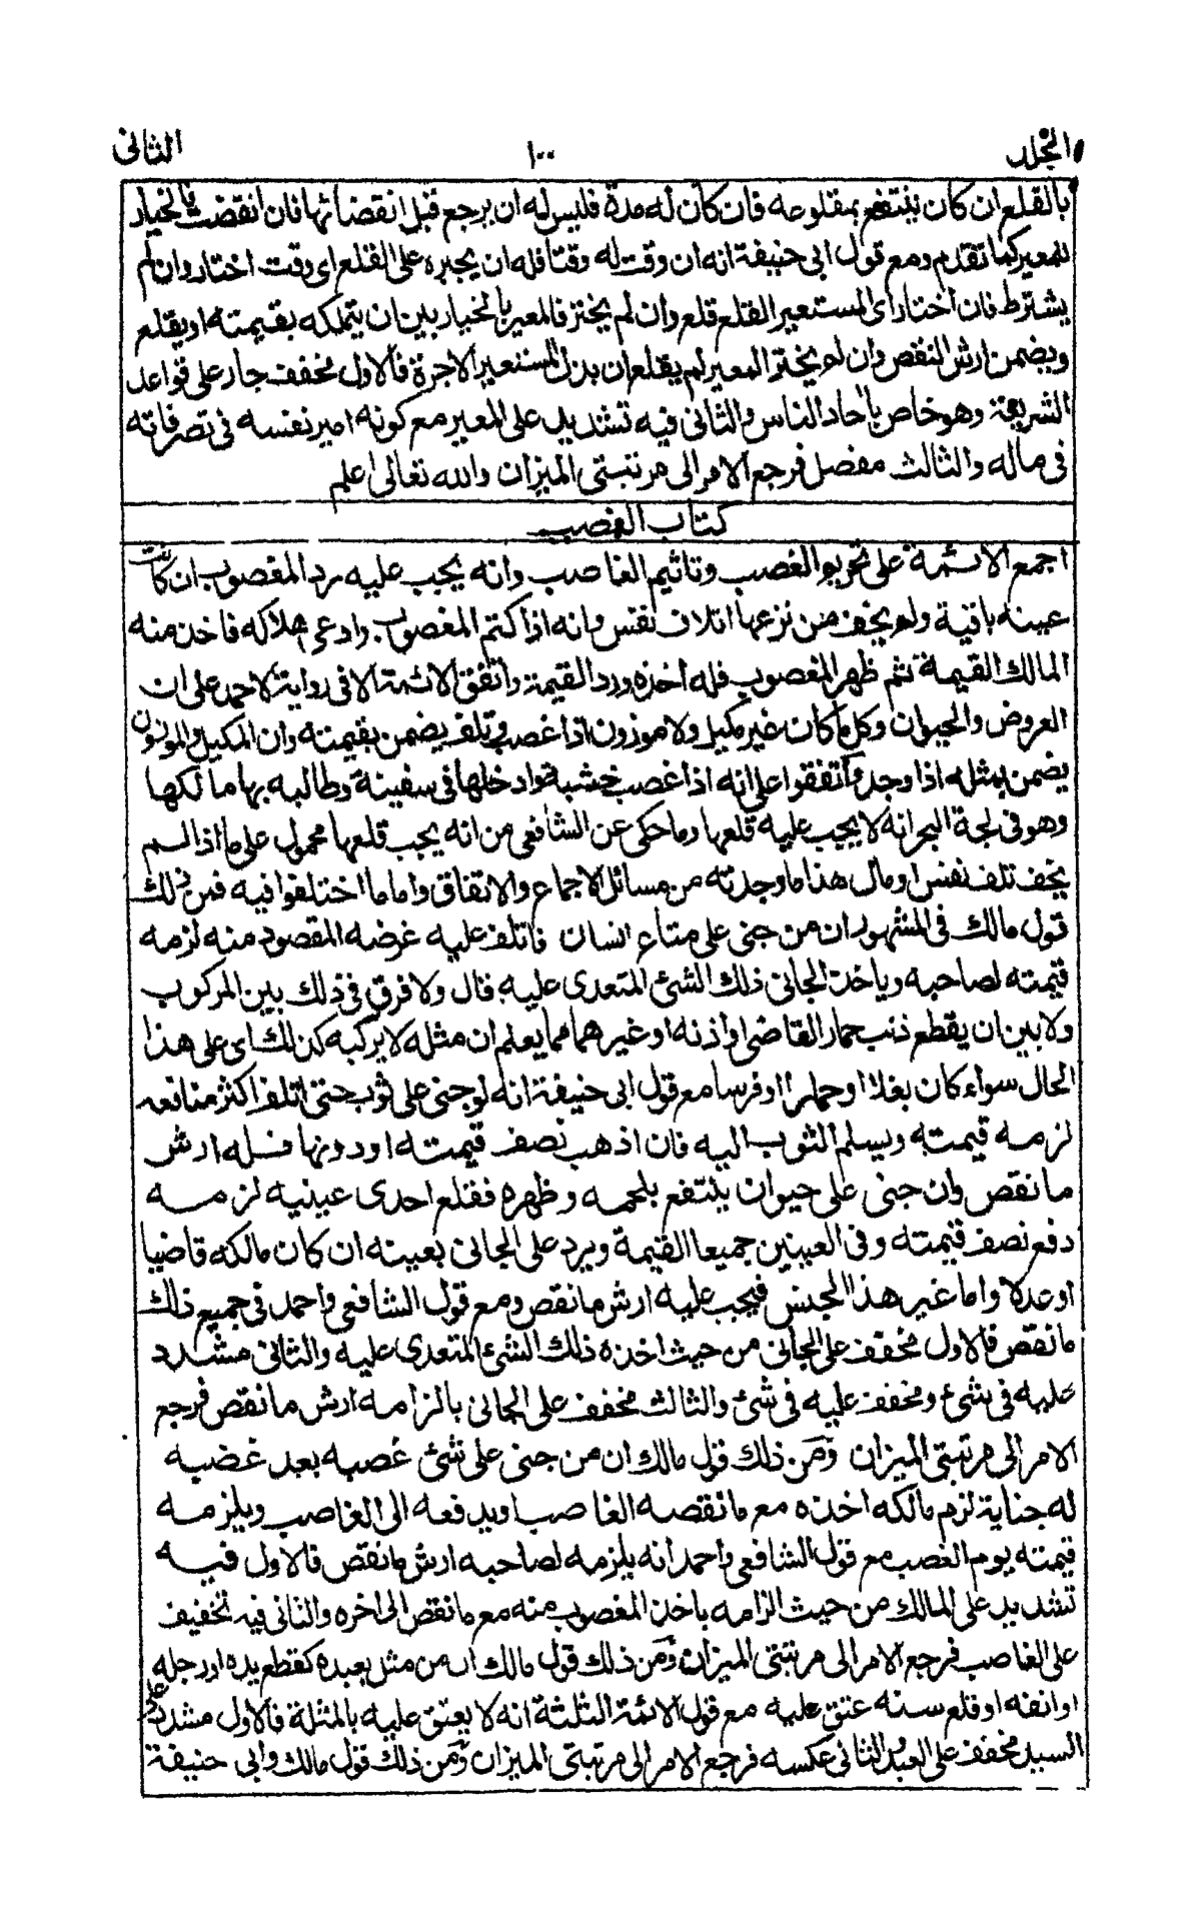 المجلد ١٠٠ الثانى
بالقلع ان كان ينتفع بمقلوعه فان كان له مدة فليس له ان يرجع قبل انقضائها فان انقضت فالخيار
للمعير كما تقدم ومع قول ابى حنيفة انه ان وقت له وقتا فله ان يجبره على القلع اى وقت اختار وان لم
يشترط فان اختار اى المستعير القلع قلع وان لم يختر فالمعير بالخيار بين ان يتملكه بقيمته او يقلع
ويضمن ارش النقص وان لم يختر المعير لم يقلع ان بذل المستعير الاجرة فالاول مخفف جار على قواعد
الشريعة وهو خاص بآحاد الناس والثانى فيه تشديد على المعير مع كونه امير نفسه فى تصرفاته
فى ماله والثالث مفصل فرجع الامر الى مرتبتى الميزان والله تعالى اعلم
كتاب الغصب
اجمع الائمة على تحريم الغصب وتاثيم الغاصب وانه يجب عليه رد المغصوب ان كانت
عينه باقية ولم يخف من نزعها اتلاف نفس وانه اذا كتم المغصوب وادعى هلاكه فاخذ منه
المالك القيمة ثم ظهر المغصوب فله اخذه ورد القيمة واتفق الائمة الا فى رواية لاحمد على ان
العروض والحيوان وكل ما كان غير مكيل ولا موزون اذا غصب وتلف يضمن بقيمته وان المكيل والموزون
يضمن بمثله اذا وجد واتفقوا على انه اذا غصب خشبة وادخلها فى سفينة وطالبه بها مالكها
وهو فى لجة البحر انه لا يجب عليه قلعها وما حكى عن الشافعى من انه يجب قلعها محمول على ما اذا لم
يخف تلف نفس او مال هذا ما وجدته من مسائل الاجماع والاتفاق واما ما اختلفوا فيه فمن ذلك
قول مالك فى المشهور ان من جنى على متاع انسان فاتلف عليه غرضه المقصود منه لزمه
قيمته لصاحبه وياخذ الجانى ذلك الشئ المتعدى عليه قال ولا فرق فى ذلك بين المركوب
ولا بين ان يقطع ذنب حمار القاضى او اذنه او غيرهما مما يعلم ان مثله لا يركبه كذلك اى على هذا
الحال سواء كان بغلا او حمارا او فرسا مع قول ابى حنيفة انه لو جنى على ثوب حتى اتلف اكثر منافعه
لزمه قيمته ويسلم الثوب اليه فان اذهب نصف قيمته او دونها فله ارش
ما نقص وان جنى على حيوان ينتفع بلحمه وظهره فقلع احدى عينيه لزمه
دفع نصف قيمته وفى العينين جميعا القيمة ويرد على الجانى بعينه ان كان مالكه قاضيا
او عدلا واما غير هذا الجنس فيجب عليه ارش ما نقص ومع قول الشافعى واحمد فى جميع ذلك
ما نقص فالاول مخفف على الجانى من حيث اخذه ذلك الشئ المتعدى عليه والثانى مشدد
عليه فى شئ ومخفف عليه فى شئ والثالث مخفف على الجانى بالزامه ارش ما نقص فرجع
الامر الى مرتبتى الميزان ومن ذلك قول مالك ان من جنى على شئ غصبه بعد غضبه
له جناية لزم مالكه اخذه مع ما نقصه الغاصب او يدفعه الى الغاصب ويلزمه
قيمته يوم الغصب مع قول الشافعى واحمد انه يلزمه لصاحبه ارش ما نقص فالاول فيه
تشديد على المالك من حيث الزامه باخذ المغصوب منه مع ما نقص الى اخره والثانى فيه تخفيف
على الغاصب فرجع الامر الى مرتبتى الميزان ومن ذلك قول مالك ان من مثل بعبده كقطع يده او رجله
او انفه او قلع سنه عتق عليه مع قول الائمة الثلثة انه لا يعتق عليه بالمثلة فالاول مشدد على
السيد مخفف على العبد والثانى عكسه فرجع الامر الى مرتبتى الميزان ومن ذلك قول مالك وابى حنيفة